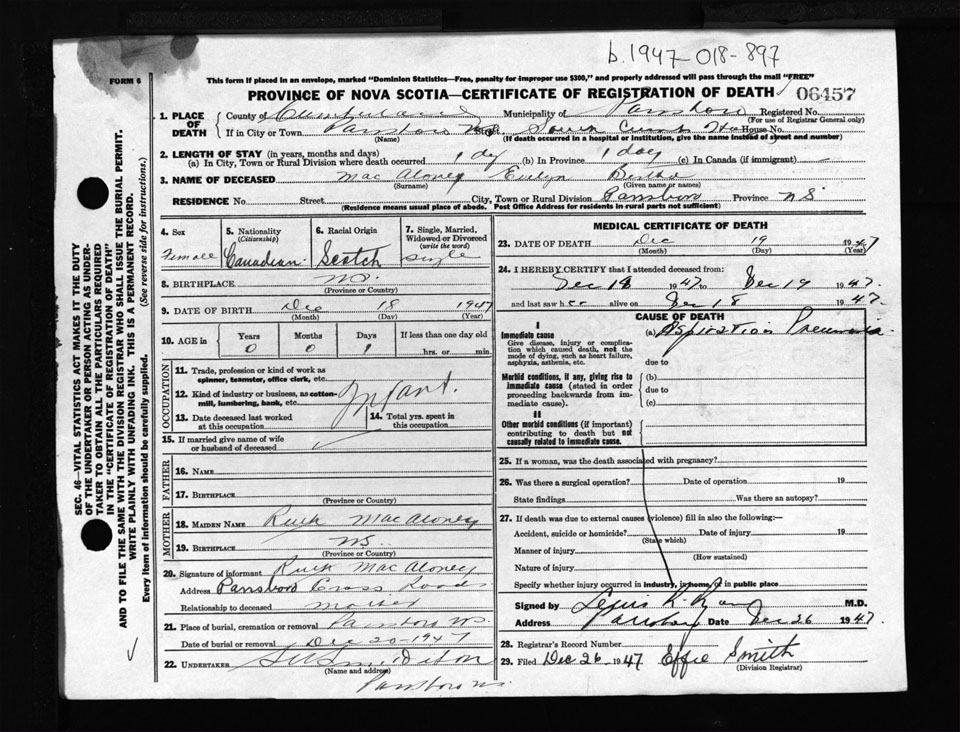 b. 1947-018-897
FORM 6
This form if placed in an envelope, marked "Dominion Statistics—Free, penalty for improper use $300," and properly addressed will pass through the mail "FREE"
PROVINCE OF NOVA SCOTIA—CERTIFICATE OF REGISTRATION OF DEATH
06457
1. PLACE OF DEATH
County of Cumberland Municipality of Parrsboro Registered No.
(For use of Registrar General only)
If in City or Town Parrsboro N.S. Street House No.
(Name) (If death occurred in a hospital or institution, give the name instead of street and number)
2. LENGTH OF STAY (in years, months and days)
(a) In City, Town or Rural Division where death occurred 1 day (b) In Province 1 day (c) In Canada (if immigrant) —
3. NAME OF DECEASED Mac Aloney Evelyn Bertha
(Surname) (Given name or names)
RESIDENCE No. Street City, Town or Rural Division Parrsboro Province NS
(Residence means usual place of abode. Post Office Address for residents in rural parts not sufficient)
4. Sex
Female
5. Nationality
(Citizenship)
Canadian
6. Racial Origin
Scotch
7. Single, Married, Widowed or Divorced
(write the word)
Single
8. BIRTHPLACE NS.
(Province or Country)
9. DATE OF BIRTH Dec 18 1947
(Month) (Day) (Year)
10. AGE in
Years Months Days If less than one day old
0 0 1 hrs. or min.
OCCUPATION
11. Trade, profession or kind of work as spinner, teamster, office clerk, etc.
12. Kind of industry or business, as cotton-mill, lumbering, bank, etc.
Infant.
13. Date deceased last worked at this occupation
14. Total yrs. spent in this occupation
15. If married give name of wife or husband of deceased
FATHER
16. NAME
17. BIRTHPLACE
(Province or Country)
MOTHER
18. MAIDEN NAME Ruth MacAloney
19. BIRTHPLACE NS.
(Province or Country)
20. Signature of informant Ruth MacAloney
Address Parrsboro Cross Roads
Relationship to deceased mother
21. Place of burial, cremation or removal Parrsboro NS.
Date of burial or removal Dec 20-1947
22. UNDERTAKER
(Name and address)
Parrsboro NS.
MEDICAL CERTIFICATE OF DEATH
23. DATE OF DEATH Dec 19 1947
(Month) (Day) (Year)
24. I HEREBY CERTIFY that I attended deceased from:
Dec 18 1947 to Dec 19 1947
and last saw her alive on Dec 18 1947
CAUSE OF DEATH
I
Immediate cause
Give disease, injury or complication which caused death, not the mode of dying, such as heart failure, asphyxia, asthenia, etc.
(a) Aspiration Pneumonia
due to
Morbid conditions, if any, giving rise to immediate cause (stated in order proceeding backwards from immediate cause).
(b)
due to
(c)
II
Other morbid conditions (if important) contributing to death but not causally related to immediate cause.
25. If a woman, was the death associated with pregnancy?
26. Was there a surgical operation? Date of operation 19
State findings Was there an autopsy?
27. If death was due to external causes (violence) fill in also the following:—
Accident, suicide or homicide? Date of injury 19
(State which)
Manner of injury
(How sustained)
Nature of injury
Specify whether injury occurred in industry, in home, or in public place
Signed by M.D.
Address Parrsboro Date Dec 26 1947
28. Registrar's Record Number
29. Filed Dec 26 1947 Effie Smith
(Division Registrar)
SEC. 46—VITAL STATISTICS ACT MAKES IT THE DUTY
OF THE UNDERTAKER OR PERSON ACTING AS UNDERTAKER TO OBTAIN ALL THE PARTICULARS REQUIRED
IN THE "CERTIFICATE OF REGISTRATION OF DEATH"
AND TO FILE THE SAME WITH THE DIVISION REGISTRAR WHO SHALL ISSUE THE BURIAL PERMIT.
WRITE PLAINLY WITH UNFADING INK. THIS IS A PERMANENT RECORD.
Every item of information should be carefully supplied. (See reverse side for instructions.)